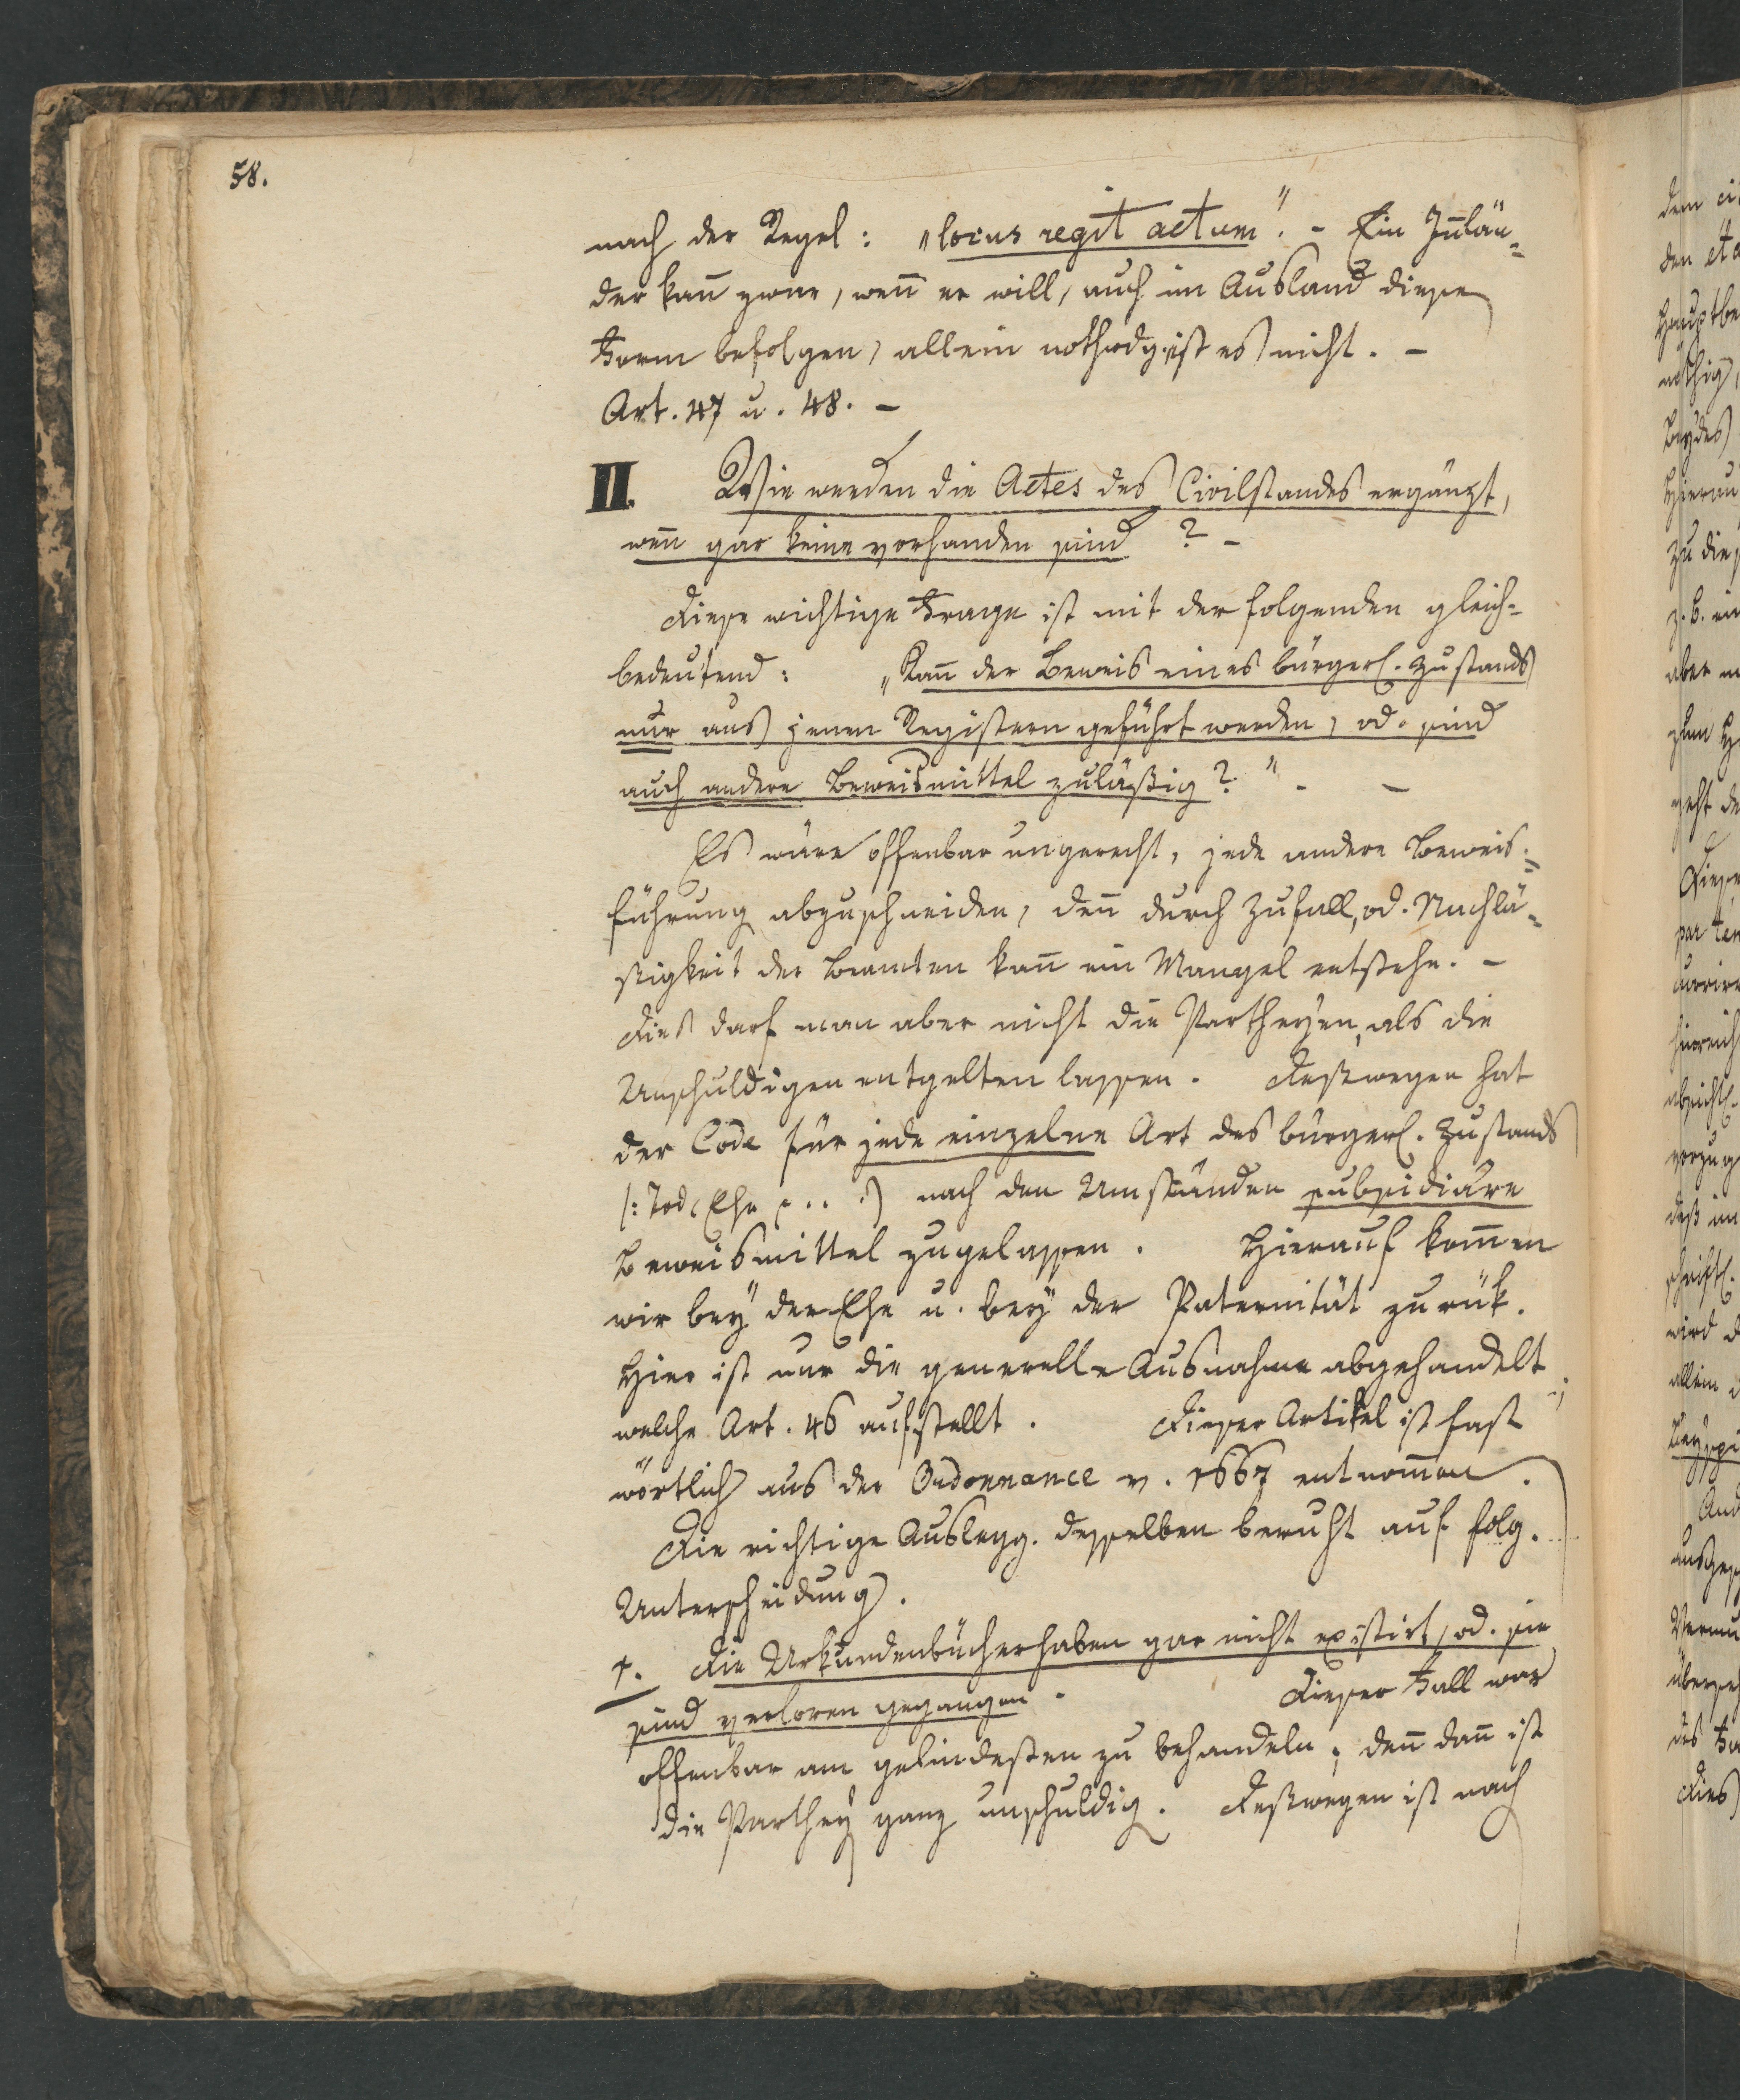 58.
nach der Regel: „locus regit actum". - Ein Inlän=
der kan̄ zwar, wen̄ er will, auch im Ausland diese
Form befolgen, allein nothwdg. ist es nicht. -
Art. 47 u. 48. -
II. Wie werden die Actes des Civilstandes ergänzt,
wen̄ gar keine vorhanden sind? -
Diese wichtige Frage ist mit der folgenden gleich=
bedeutend: „Kan̄ der Beweis eines bürgerl. Zustands
nur aus jenen Registern geführt werden, od. sind
auch andere Beweismittel zuläßig?" - -
Es wäre offenbar ungerecht, jede andere Beweis=
führung abzuschneiden, den̄ durch Zufall, od. Nachlä=
ßigkeit der Beamten kan̄ ein Mangel entstehn. -
Dies darf man aber nicht die Partheyen, als die
Unschuldigen entgelten lassen. Deßwegen hat
der Code für jede einzelne Art des bürgerl. Zustands
/: Tod, Ehe ... :/ nach den Umständen subsidiäre
Beweismittel zugelassen. Hierauf kom̄en
wir bey der Ehe u. bey der Paternität zurük.
Hier ist nur die generelle Ausnahme abgehandelt,
welche Art. 46 aufstellt. Dieser Artikel ist fast
wörtlich aus der Ordonnance v. 1667 entnom̄en.
Die richtige Auslegg. desselben beruht auf folg.
Unterscheidung.
1. Die Urkundenbücher haben gar nicht existirt, od. sie
sind verloren gegangen. Dieser Fall war
offenbar am gelindesten zu behandeln; den̄ dan̄ ist
die Parthey ganz unschuldig. Deßwegen ist nach